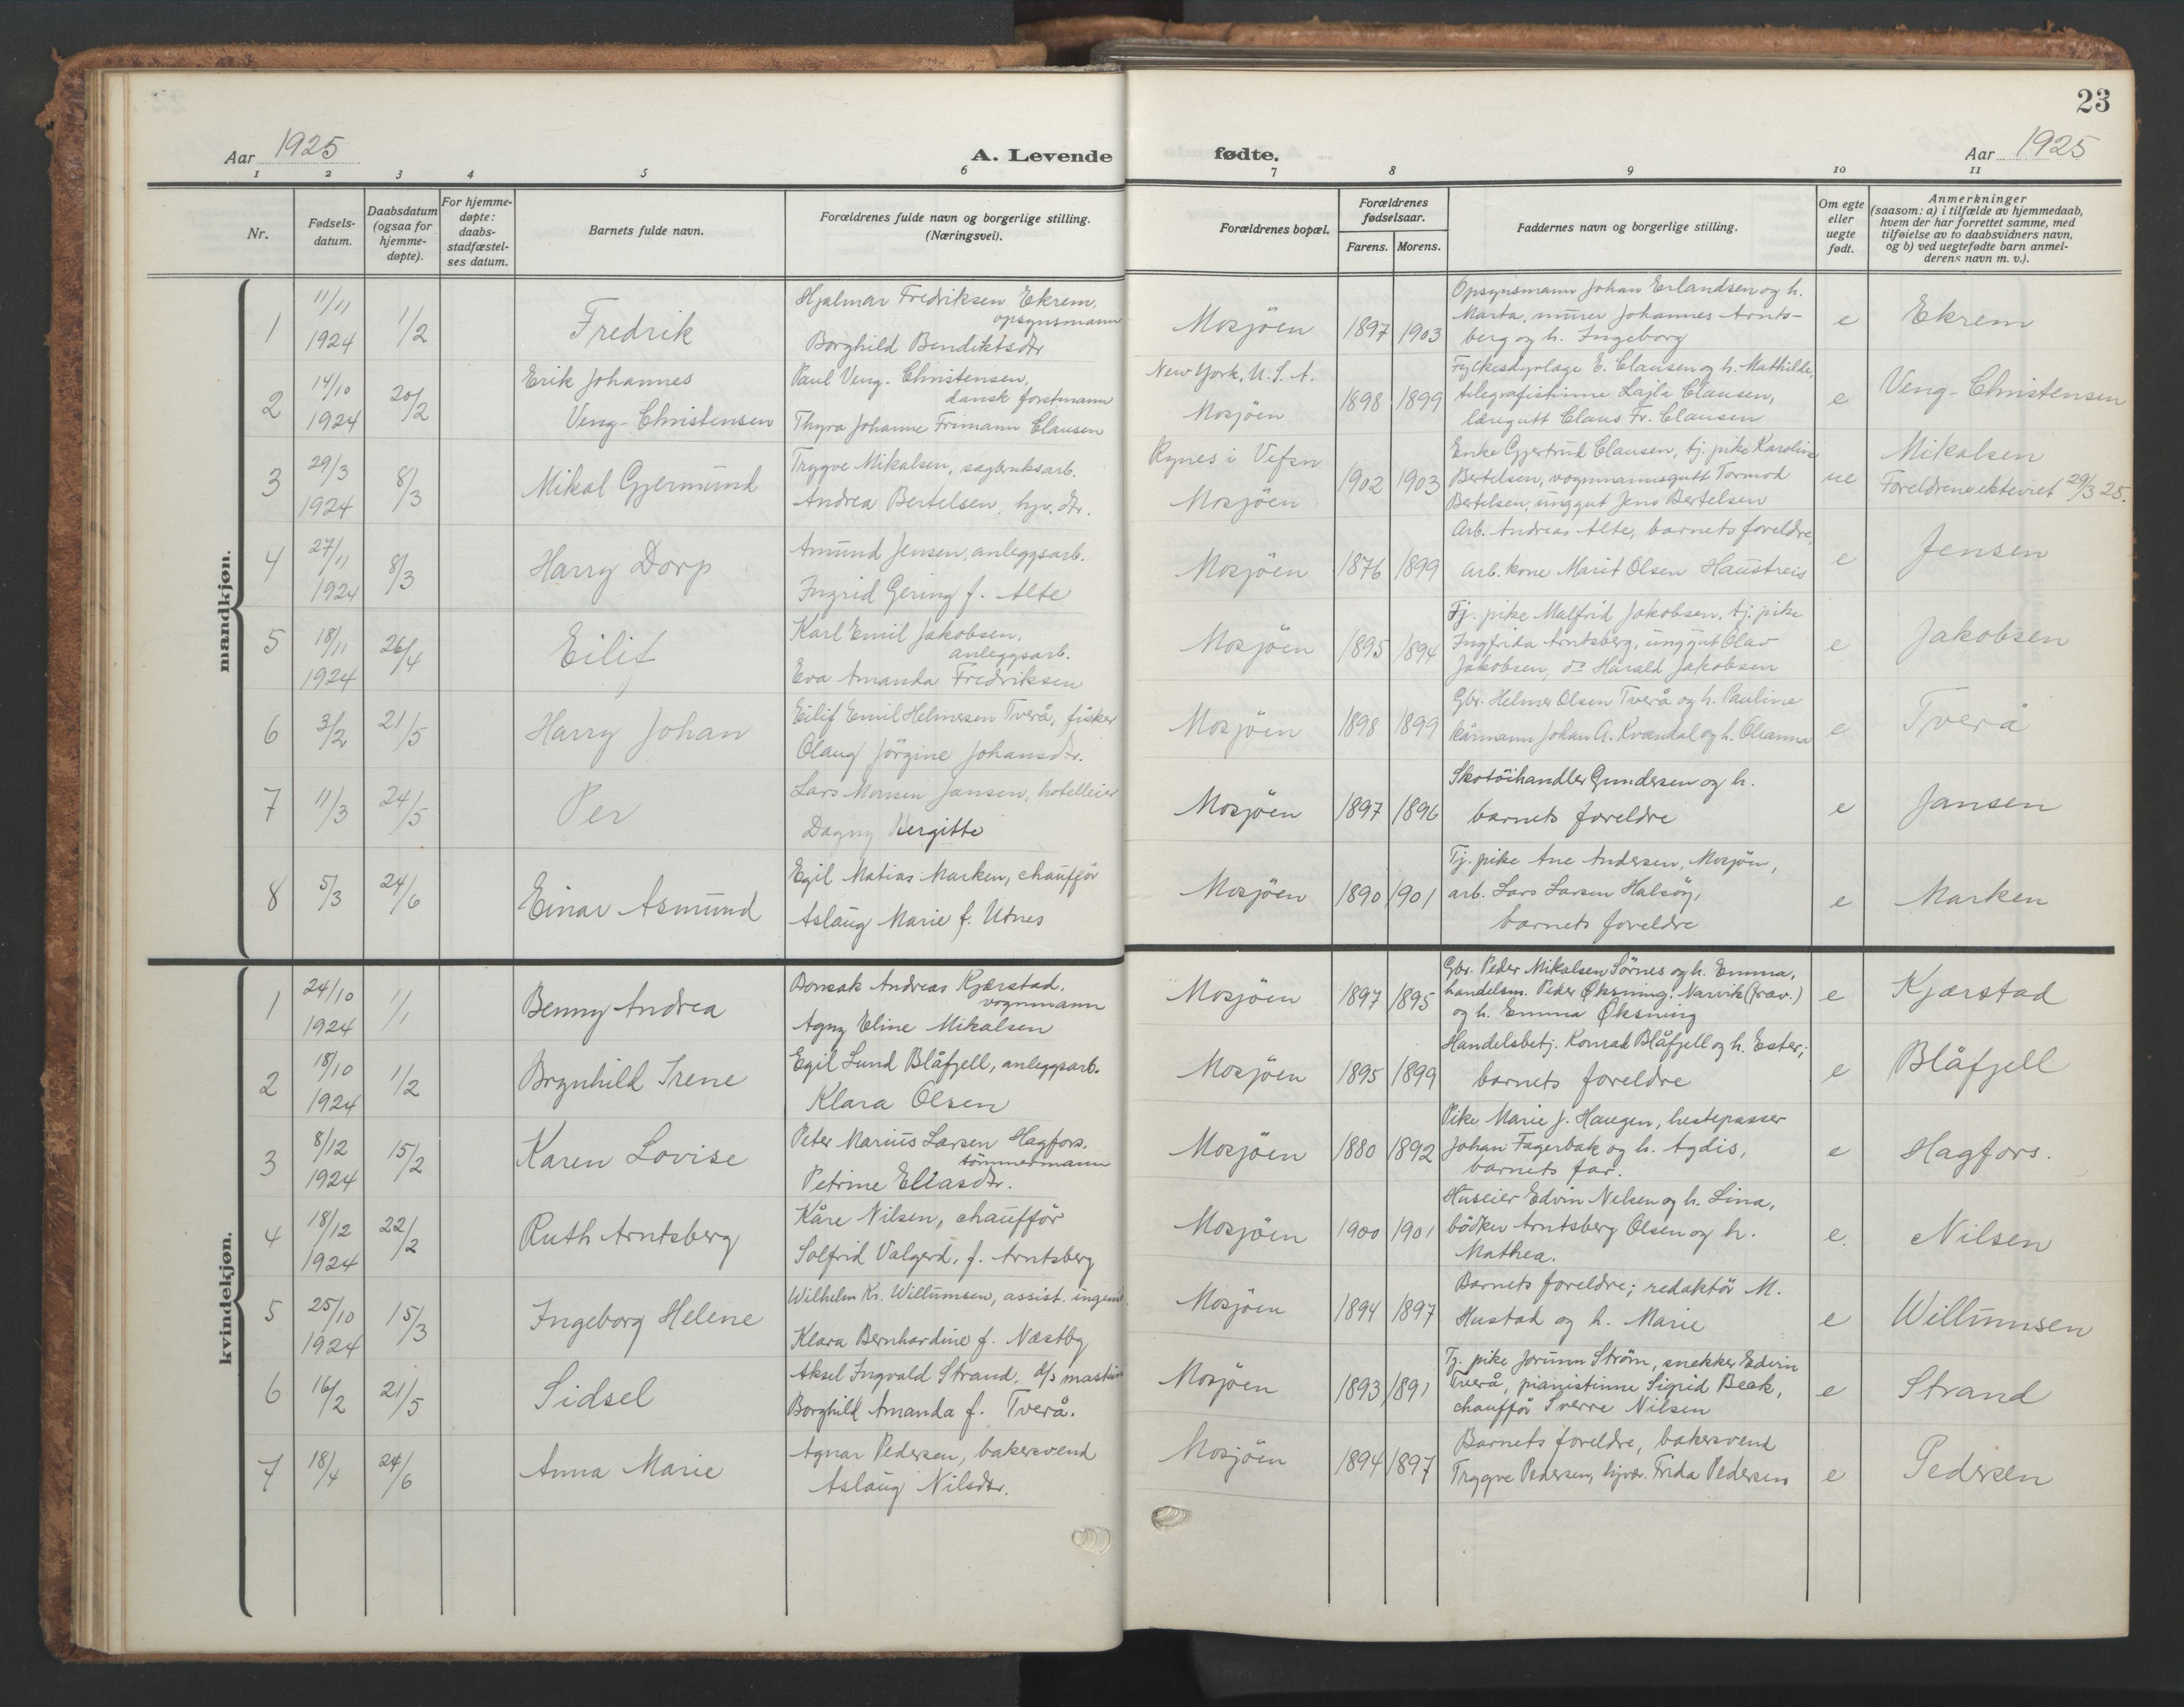 23
Aar 1925
A. Levende fødte.
Aar 1925
1 2 3 4 5 6 7 8 9 10 11
Nr.
Fødsels-
datum.
Daabsdatum
(ogsaa for
hjemme-
døpte).
For hjemme-
døpte:
daabs-
stadfæstel-
ses datum.
Barnets fulde navn.
Forældrenes fulde navn og borgerlige stilling.
(Næringsvei).
Forældrenes bopæl.
Forældrenes
fødselsaar.
Farens. Morens.
Faddernes navn og borgerlige stilling.
Om egte
eller
uegte
født.
Anmerkninger
(saasom: a) i tilfælde av hjemmedaab,
hvem der har forrettet samme, med
tilføielse av to daabsvidners navn,
og b) ved uegtefødte barn anmel-
derens navn m. v.).
mandkjøn.
1
11/11
1924
1/2
Fredrik
Hjalmar Fredriksen Ekrem,
opsynsmann
Borghild Bendiktsdtr
Mosjöen
1897 1903
Opsynsmann Johan Erlandsen og h.
Marta, murer Johannes Arnts-
berg og h. Ingeborg
e
Ekrem
2
14/10
1924
20/2
Erik Johannes
Veng-Christensen
Paul Veng-Christensen,
dansk forstmann
Thyra Johanne Frimann Clausen
New York, U.S.A.
Mosjöen
1898 1899
Fylkesdyrlæge E. Clausen og h. Mathilde,
telegrafistinne Lajla Clausen,
læregutt Claus Fr. Clausen
e
Veng-Christensen
3
29/3
1924
8/3
Mikal Gjermund
Trygve Mikalsen, sagbruksarb.
Andrea Bertelsen, hjv. dtr.
Rynes i Vefsn
Mosjöen
1902 1903
Enke Gjertrud Clausen, tj. pike Karoline
Bertelsen, vognmannsgutt Tormod
Bertelsen, unggut Jens Bertelsen
ue
Mikalsen
Foreldrene ekteviet 29/3 25.
4
27/11
1924
8/3
Harry Dorp
Amund Jensen, anleggsarb.
Ingrid Gering f. Alte
Mosjöen
1876 1899
Arb. Andreas Alte, barnets foreldre,
arb. kone Marit Olsen Haustreis
e
Jensen
5
18/11
1924
26/4
Eilif
Karl Emil Jakobsen,
anleggsarb.
Eva Amanda Fredriksen
Mosjöen
1895 1894
Tj. pike Malfrid Jakobsen, tj. pike
Ingfrida Arntsberg, unggut Olav
Jakobsen, do Harald Jakobsen
e
Jakobsen
6
3/2
21/5
Harry Johan
Eilif Emil Helmersen Tverå, fisker
Olaug Jörgine Johansdtr.
Mosjöen
1898 1899
Gbr. Helmer Olsen Tverå og h. Pauline
kårmann Johan A. Kvandal og h. Oleanna
e
Tverå
7
11/3
24/5
Per
Lars Monsen Jansen, hotelleier
Dagny Bergitte
Mosjöen
1897 1896
Skotöihandler Gundersen og h.
barnets foreldre
e
Jansen
8
5/3
24/6
Einar Asmund
Egil Matias Marken, chaufför
Aslaug Marie f. Utnes
Mosjöen
1890 1901
Tj. pike Ane Andersen, Mosjöen,
arb. Lars Larsen Halsöy,
barnets foreldre
e
Marken
kvindekjøn.
1
24/10
1924
1/1
Benny Andrea
Bonsak Andreas Kjærstad,
vognmann
Agny Eline Mikalsen
Mosjöen
1897 1895
Gbr. Peder Mikalsen Sörnes og h. Emma,
handelsm. Peder Øksning, Narvik (frav.)
og h. Emma Øksning
e
Kjærstad
2
18/10
1924
1/2
Brynhild Irene
Egil Lund Blåfjell, anleggsarb.
Klara Olsen
Mosjöen
1895 1899
Handelsbetj. Konrad Blåfjell og h. Ester;
barnets foreldre
e
Blåfjell
3
8/12
1924
15/2
Karen Lovise
Peter Marius Larsen Hagfors,
tömmermann
Petrine Eliasdtr.
Mosjöen
1880 1892
Pike Marie J. Haugen, hestepasser
Johan Fagerbak og h. Agdis,
barnets far.
e
Hagfors.
4
18/12
1924
22/2
Ruth Arntsberg
Kåre Nilsen, chaufför
Solfrid Valgerd, f. Arntsberg
Mosjöen
1900 1901
Huseier Edvin Nilsen og h. Lina,
bödker Arntsberg Olsen og h.
Mathea.
e.
Nilsen
5
25/10
1924
15/3
Ingeborg Helene
Wilhelm Kr. Willumsen, assist. ingeni
Klara Bernhardine f. Næstby
Mosjöen
1894 1897
Barnets foreldre; redaktör M.
Hustad og h. Marie
e
Willumsen
6
16/2
21/5
Sidsel
Aksel Ingvald Strand, d/s maskin
Borghild Amanda f. Tverå.
Mosjöen
1893 1891
Tj. pike Jorunn Ström, snekker Edvin
Tverå, pianistinne Sigrid Beck,
chaufför Sverre Nilsen
e
Strand
7
18/4
24/6
Anna Marie
Agnar Pedersen, bakersvend
Aslaug Nilsdtr.
Mosjöen
1894 1897
Barnets foreldre, bakersvend
Trygve Pedersen, hjvær. Frida Pedersen
e
Pedersen